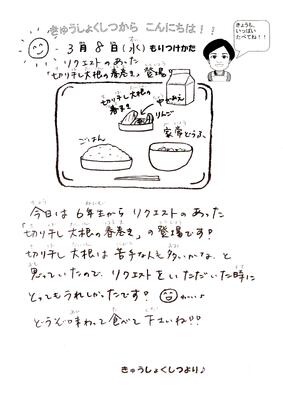 きゅうしょくしつから こんにちは！！
きょうも、
いっぱい
たべてね！！
3月8日(水)もりつけかた
リクエストのあった
「切り干し大根の春巻き」登場♪
切り干し大根の
春まき
りんご
ごはん
今日は6年生から リクエストのあった
「切り干し大根の春巻き」の登場です！
切り干し大根は苦手な人も多いかな、と
思っていたので、リクエストをいただいた時に
とってもうれしかったです！
どうぞ味わって食べて下さいね！！
きゅうしょくしつより♪